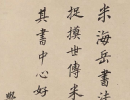 米海岳書法
捉摸世傳米
其書中心好